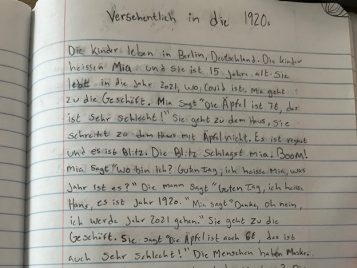 Versehentlich in die 1920s
Die Kinder leben in Berlin, Deutschland. Die Kinder
heissen Mia und sie ist 15 Jahre alt. Sie
lebt in die Jahr 2021, wo, Covid ist. Mia geht
zu die Geschäft. Mia sagt "Die Äpfel ist 7€, das
ist sehr schlecht!" Sie geht zu dem Haus, Sie
schreitt zu dem Haus mit Äpfel nicht. Es ist regnet
und es ist Blitz. Die Blitz schlagst mia. Boom!
Mia sagt "Wo bin ich? Guten Tag, ich heisse Mia, was
Jahr ist es?" Die mann sagt "Guten Tag, ich heisse
Hans, es ist Jahr 1920." Mia sagt "Danke, oh nein,
ich werde Jahr 2021 gehen." Sie geht zu die
Geschäft. Sie sagt "Die Äpfel ist auch 6€, das ist
auch sehr schlecht!" Die Menschen haben Masken.